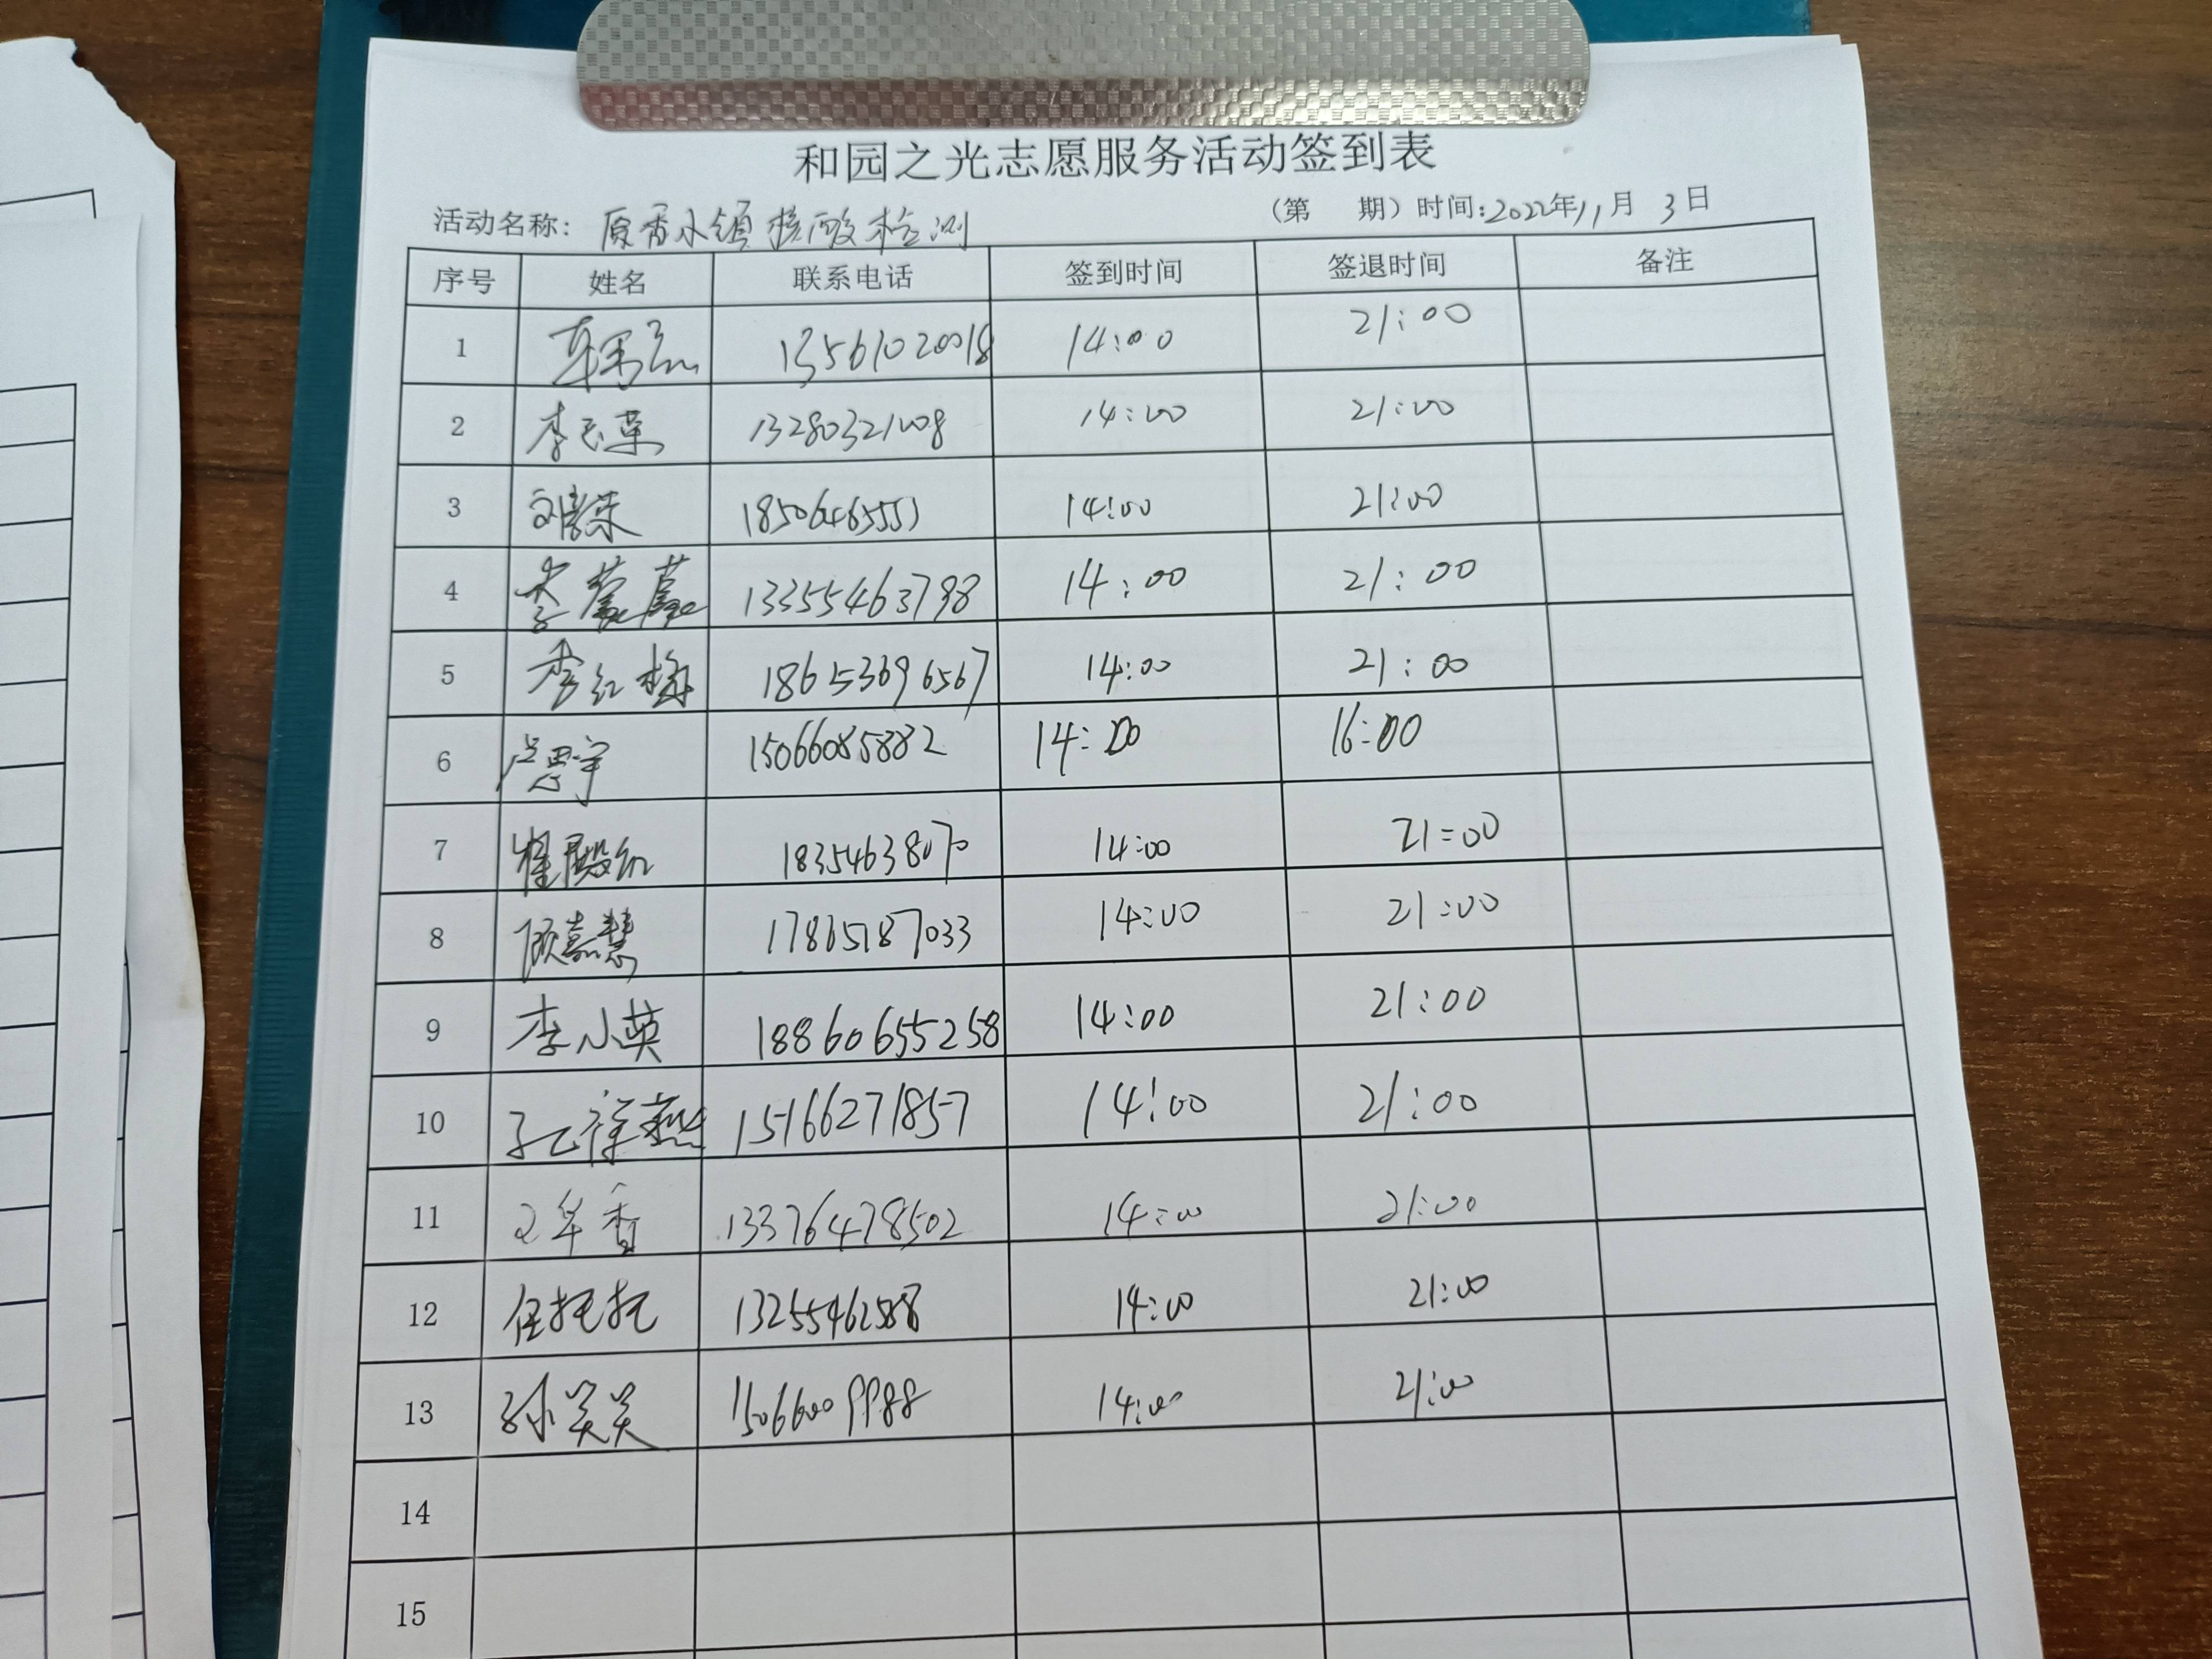 和园之光志愿服务活动签到表
活动名称：原香小镇核酸检测 （第 期）时间：2022年11月3日
序号 姓名 联系电话 签到时间 签退时间 备注
1 13561020018 14:00 21:00
2 李玉荣 13280321008 14:00 21:00
3 14:00 21:00
4 李蒙蒙 13355463798 14:00 21:00
5 李红梅 18653696567 14:00 21:00
6 卢思宇 15066085882 14:00 16:00
7 崔殿红 18354638070 14:00 21:00
8 顾嘉慧 17865187033 14:00 21:00
9 李小英 18860655258 14:00 21:00
10 15166271857 14:00 21:00
11 13376478502 14:00 21:00
12 任托托 13255462588 14:00 21:00
13 孙关关 15066009988 14:00 21:00
14
15